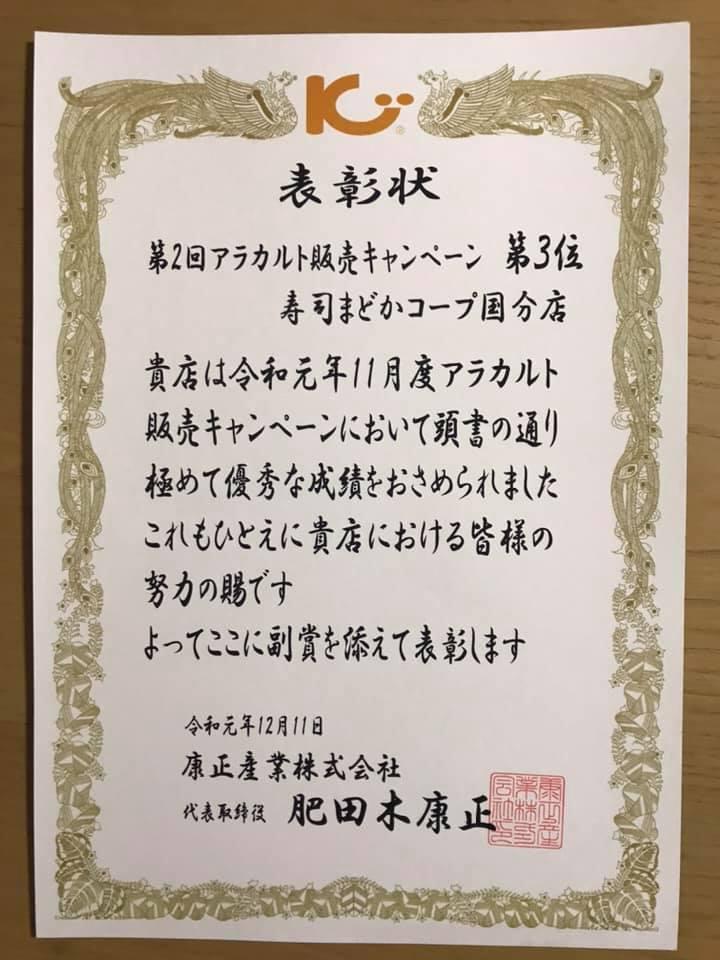 表彰状
第2回アラカルト販売キャンペーン 第3位
寿司まどかコープ国分店
貴店は令和元年11月度アラカルト
販売キャンペーンにおいて頭書の通り
極めて優秀な成績をおさめられました
これもひとえに貴店における皆様の
努力の賜です
よってここに副賞を添えて表彰します
令和元年12月11日
康正産業株式会社
代表取締役 肥田木康正